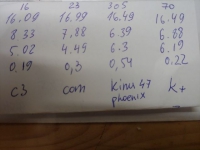 16 23 305 70
16.09 16.99 16.49 16.49
8.33 7,88 6.39 6.88
5.02 4.49 6.3 6.19
0.19 0,3 0,54 0.22
c3 com kinu 47 k+
phoenix